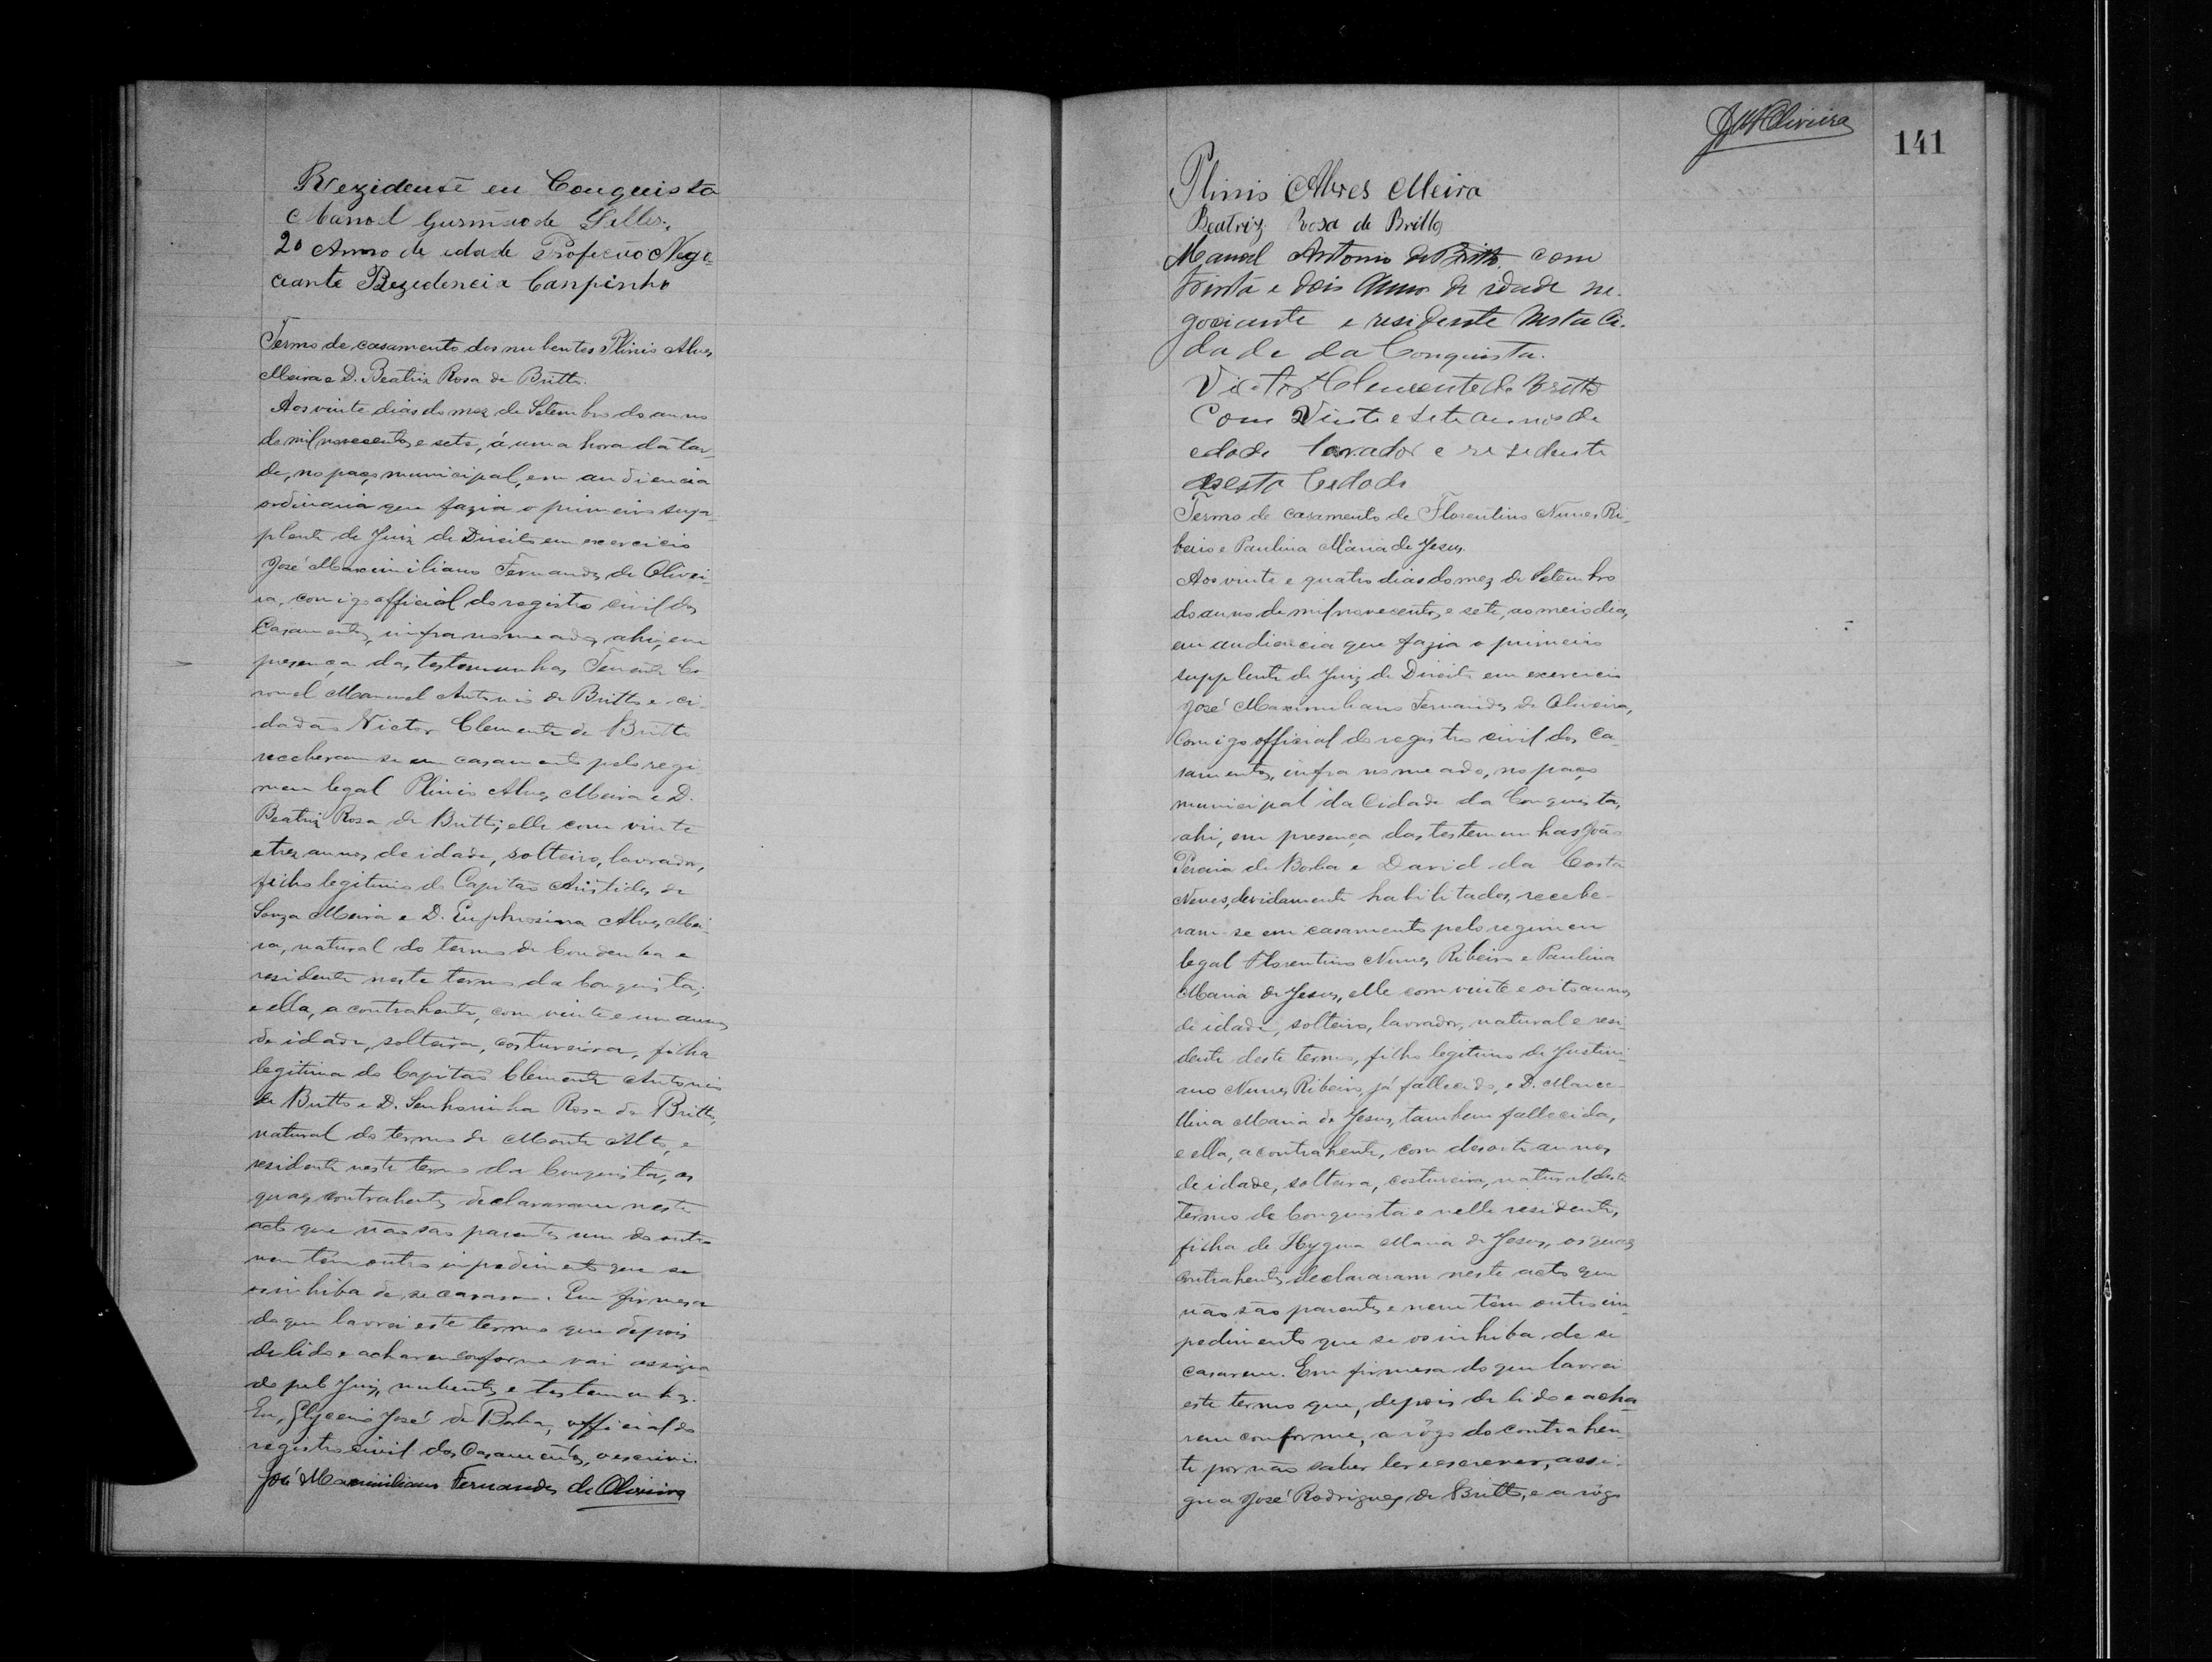 Rezidente em Conquista
Manoel Gusmão de Salles
20 Anno de edade Profeção Nego-
ciante Rezedencia Canpinho
Termo de casamento dos nubentes Plinio Alves
Meira e D. Beatriz Rosa de Britto.
Aos vinte dias do mez de Setembro do anno
de mil novecentos e sete, á uma hora da tar-
de, no paço municipal, em audiencia
ordinaria que fazia o primeiro sup-
plente de Juiz de Direito em exercicio
José Maximiliano Fernandes de Olivei-
ra, comigo official do registro civil dos
Casamentos, infra nomeado, ahi, em
presença das testemunhas Tenente Co-
ronel Manuel Antonio de Britto e ci-
dadão Victor Clemente de Britto
receberam-se em casamento pelo regi-
mem legal Plinio Alves Meira e D.
Beatriz Rosa de Britto; elle com vinte
e trez annos de idade, solteiro, lavrador,
filho legitimo do Capitão Aristides de
Souza Meira e D. Euphrosina Alves Mei-
ra, natural do termo de Condeuba e
residente neste termo da Conquista;
e ella, a contrahente, com vinte e um annos
de idade, solteira, costureira, filha
legitima do Capitão Clemente Antonio
de Britto e D. Senhorinha Rosa de Britto,
natural do termo de Monte Alto, e
residente neste termo da Conquista, os
quaes contrahentes declararam neste
acto que não são parentes um do outro
nem têm outro impedimento que se
os inhiba de se casarem. Em firmesa
do que lavrei este termo que depois
de lido e acharem conforme vai assigna-
do pelo Juiz, nubentes e testemunhas.
Eu, Glycerio José de Borba, official do
registro civil dos Casamentos, o escrevi.
José Maximiliano Fernandes de Oliveira
JMFOliveira
141
Plinio Alves Meira
Beatriz Rosa de Britto
Manoel Antonio de Britto com
trinta e dois annos de idade ne-
gociante e residente nesta Ci-
dade da Conquista.
Victor Clemente de Britto
Com Vinte e sete annos de
edade lavrador e residente
nesta Cedade
Termo de casamento de Florentino Nunes Ri-
beiro e Paulina Maria de Jesus.
Aos vinte e quatro dias do mez de Setembro
do anno de mil novecentos e sete, ao meio dia,
em audiencia que fazia o primeiro
supplente de Juiz de Direito em exercicio
José Maximiliano Fernandes de Oliveira,
Comigo official do registro civil dos Ca-
samentos, infra nomeado, no paço
municipal da Cidade da Conquista,
ahi, em presença das testemunhas João
Pereira de Borba e David da Costa
Neves, devidamente habilitados, recebe-
ram-se em casamento pelo regimen
legal Florentino Nunes Ribeiro e Paulina
Maria de Jesus, elle com vinte e oito annos
de idade, solteiro, lavrador, natural e resi-
dente deste termo, filho legitimo de Justini-
ano Nunes Ribeiro, já fallecido, e D. Marce-
llina Maria de Jesus, tambem fallecida,
e ella, a contrahente, com desoito annos
de idade, solteira, costureira, natural deste
termo da Conquista e nelle residente,
filha de Hygina Maria de Jesus, os quaes
contrahentes declararam neste acto que
não são parentes e nem têm outro im-
pedimento que se os inhiba de se
casarem. Em firmesa do que lavrei
este termo que, depois de lido e acha-
rem conforme, a rôgo do contrahen-
te por não saber ler e escrever, assi-
gna José Rodrigues de Britto, e a rôgo